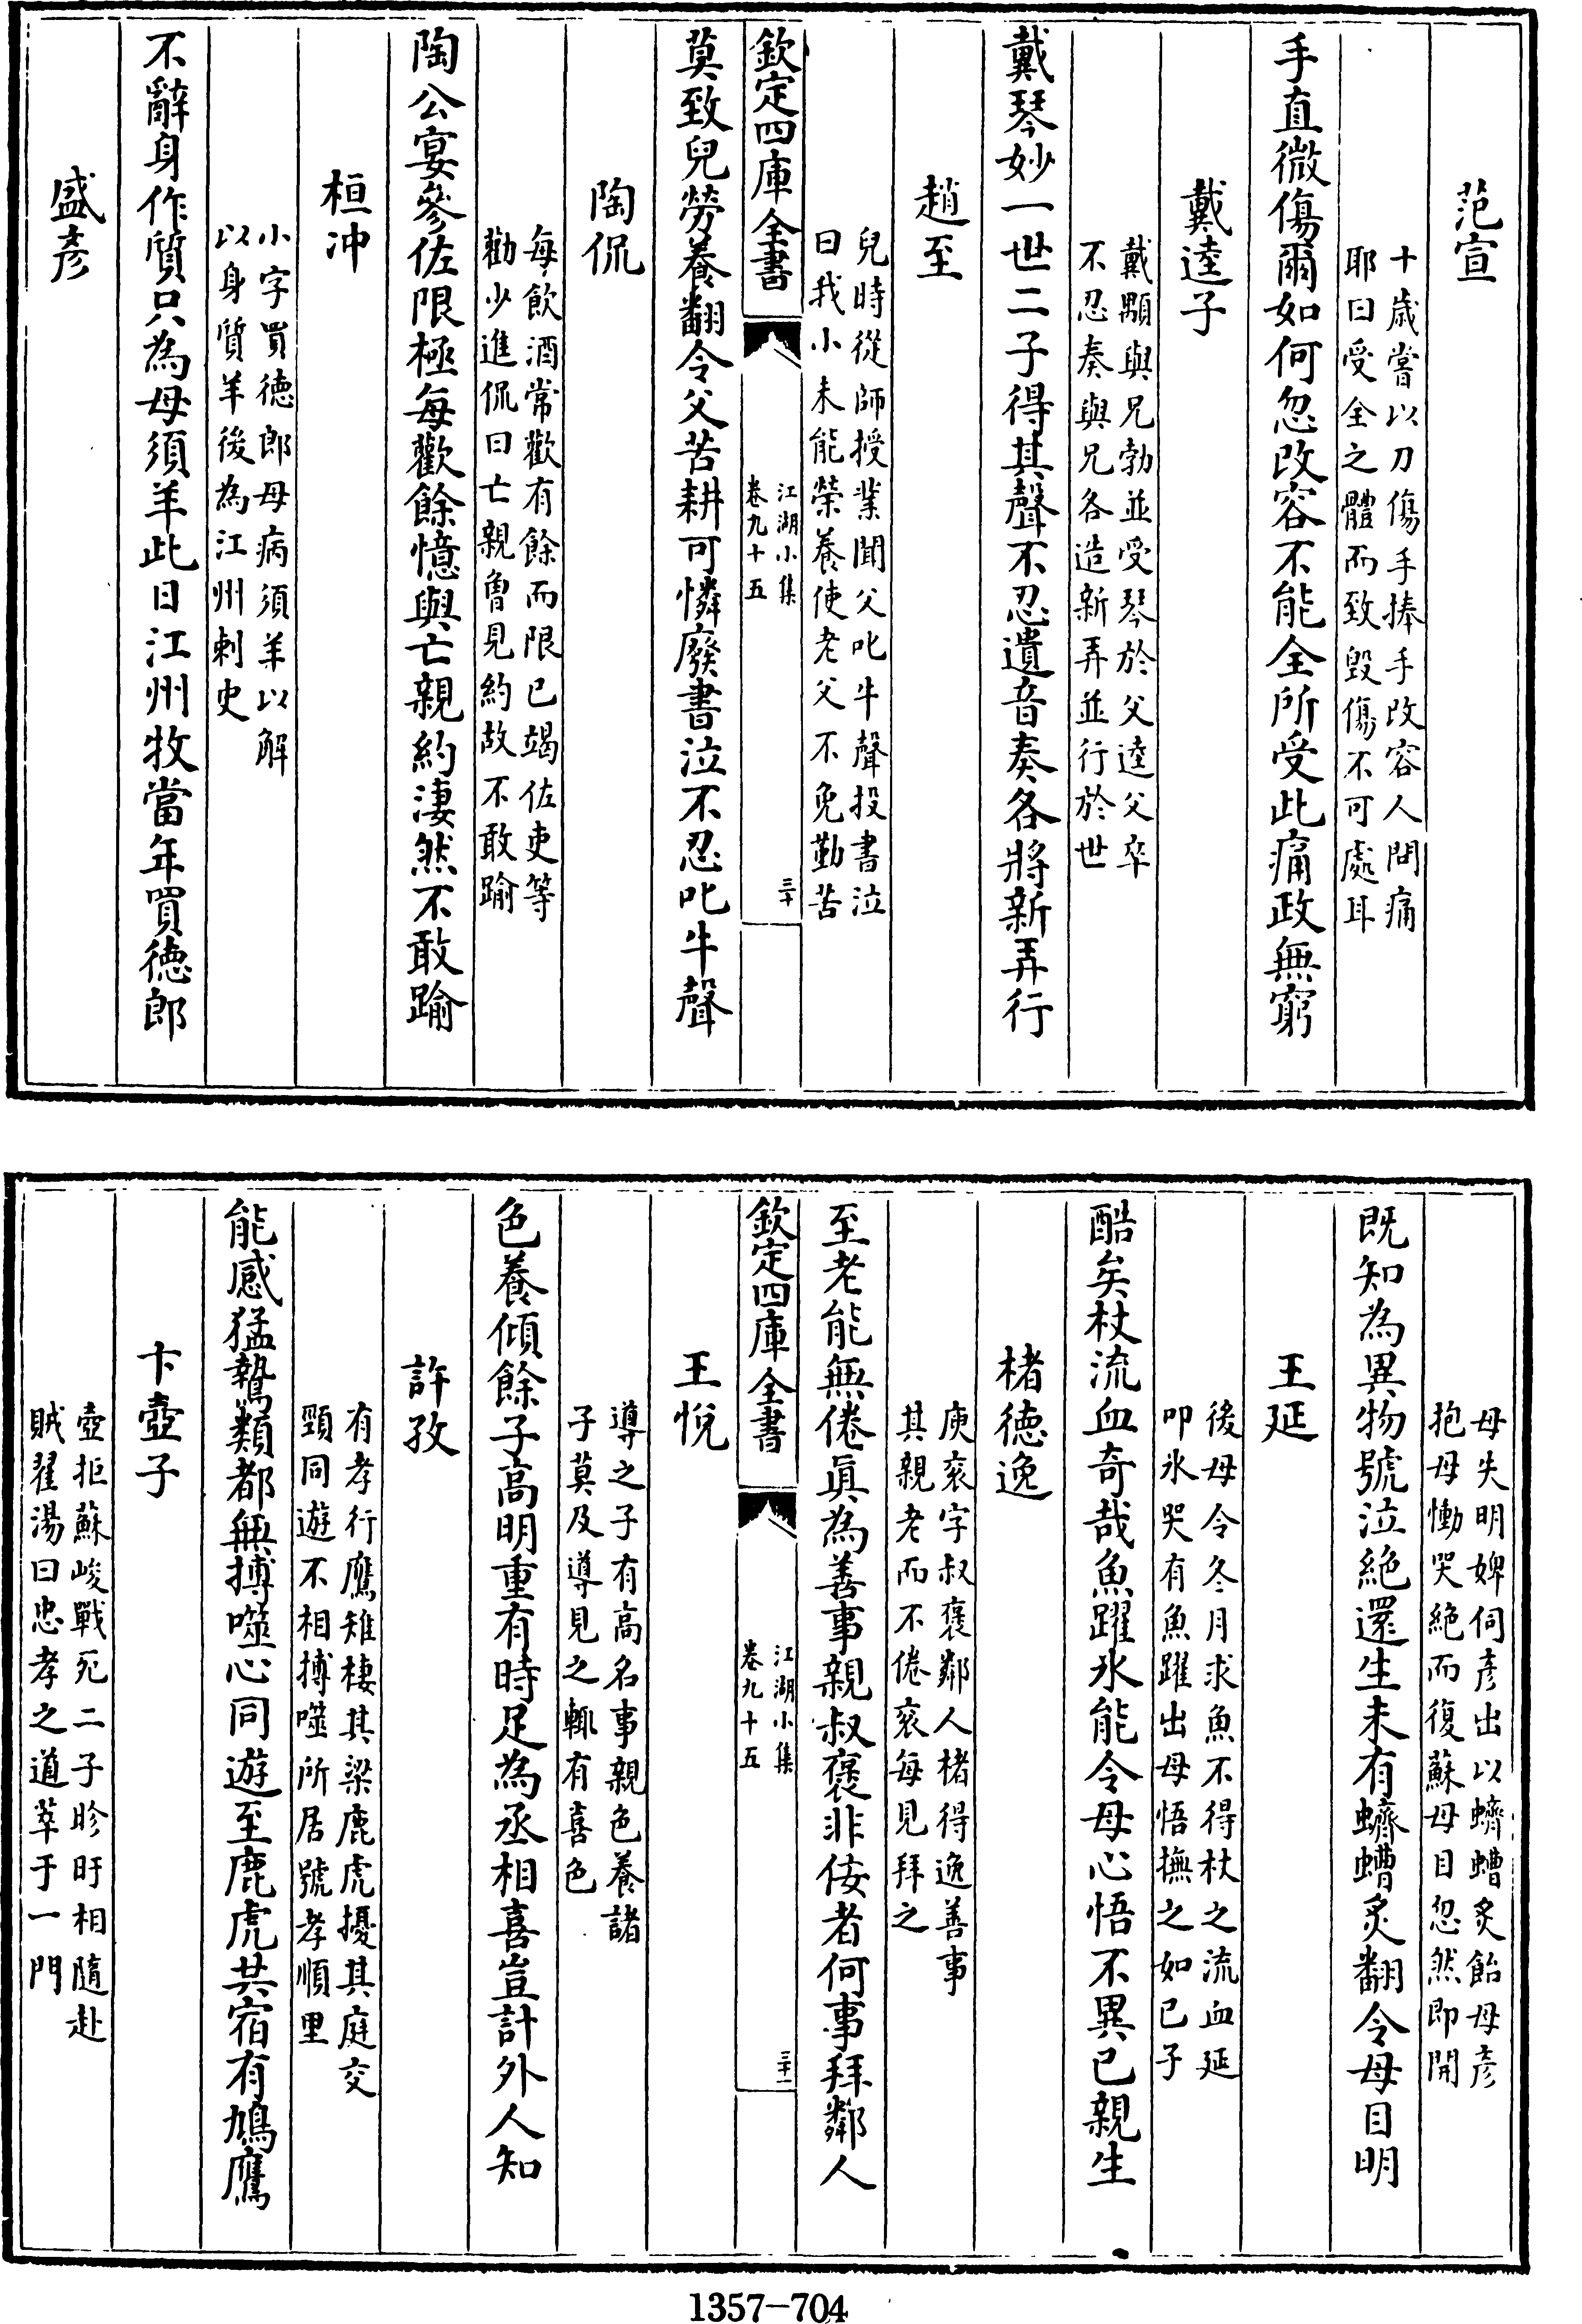 范宣
十歳嘗以刀傷手捧手改容人問痛
耶曰受全之體而致毀傷不可處耳
手直微傷爾如何忽改容不能全所受此痛政無窮
戴逵子
戴顒與兄勃並受琴於父逵父卒
不忍奏與兄各造新弄並行於世
戴琴妙一世二子得其聲不忍遺音奏各將新弄行
趙至
兒時從師授業聞父叱牛聲投書泣
曰我小未能榮養使老父不免勤苦
欽定四庫全書
江湖小集
卷九十五
三十
莫致兒勞養翻令父苦耕可憐廢書泣不忍叱牛聲
陶侃
每飲酒常歡有餘而限已竭佐吏等
勸少進侃曰亡親曾見約故不敢踰
陶公宴參佐限極每歡餘憶與亡親約淒然不敢踰
桓沖
小字買徳郎母病須羊以解
以身質羊後為江州刺史
不辭身作質只為母須羊此日江州牧當年買徳郎
盛彥
母失明婢伺彥出以蠐螬炙飴母彥
抱母慟哭絶而復蘇母目忽然即開
既知為異物號泣絶還生未有蠐螬炙翻令母目明
王延
後母令冬月求魚不得杖之流血延
叩氷哭有魚躍出母悟撫之如已子
酷矣杖流血奇哉魚躍氷能令母心悟不異已親生
楮徳逸
庾衮字叔褒鄰人楮得逸善事
其親老而不倦衮每見拜之
至老能無倦眞為善事親叔褒非佞者何事拜鄰人
欽定四庫全書
江湖小集
卷九十五
三十一
王悅
導之子有高名事親色養諸
子莫及導見之輒有喜色
色養傾餘子高明重有時足為丞相喜豈計外人知
許孜
有孝行鷹雉棲其梁鹿虎擾其庭交
頸同遊不相搏噬所居號孝順里
能感猛鷙類都無搏噬心同遊至鹿虎共宿有鳩鷹
卞壺子
壺拒蘇峻戰死二子眕盱相隨赴
賊翟湯曰忠孝之道萃于一門
1357-704